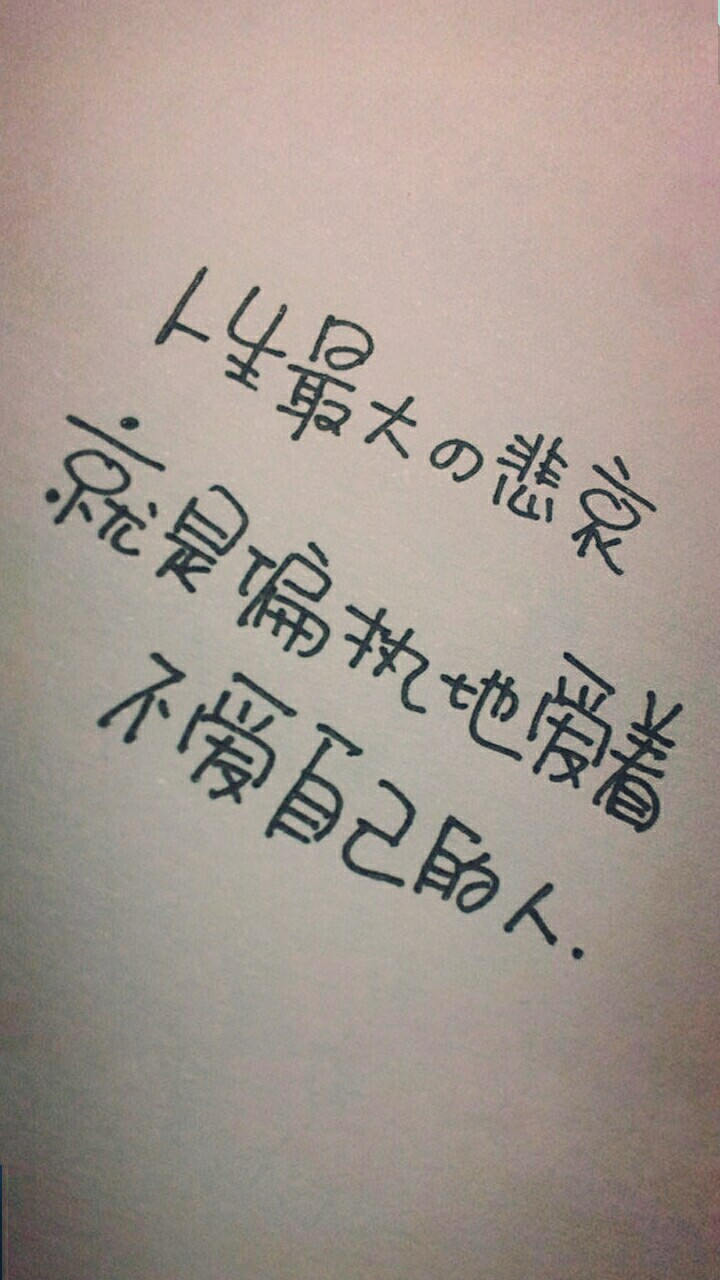 人生最大の悲哀
就是偏执地爱着
不爱自己的人.